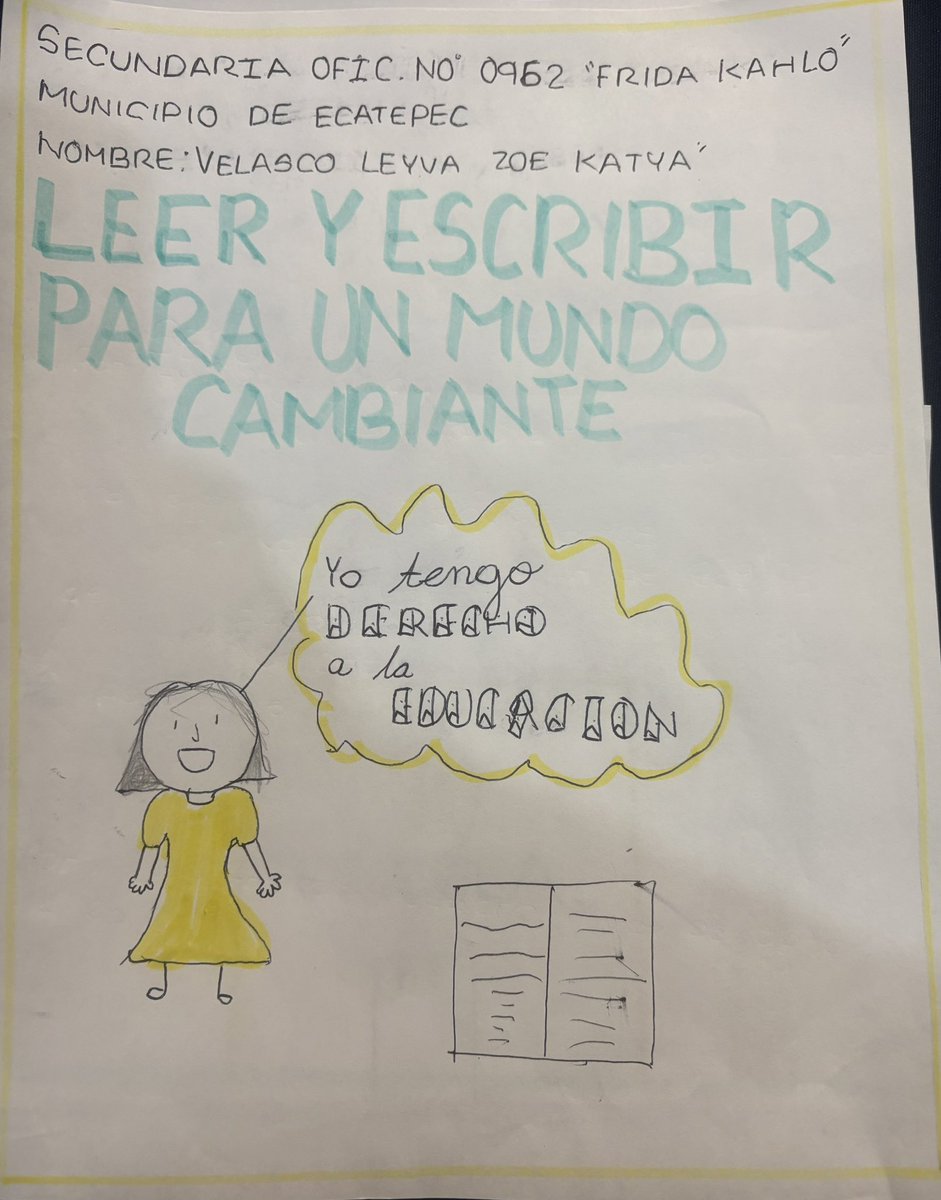 SECUNDARIA OFIC. NO° 0962 "FRIDA KAHLO"
MUNICIPIO DE ECATEPEC
NOMBRE: VELASCO LEYVA ZOE KATYA"
LEER Y ESCRIBIR
PARA UN MUNDO
CAMBIANTE
Yo tengo
DERECHO
a la
EDUCACION